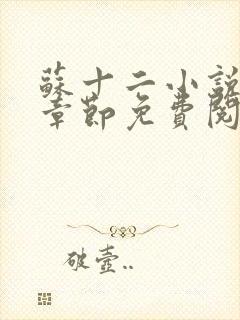 蘇十二小說
章節免費閱
破壺..